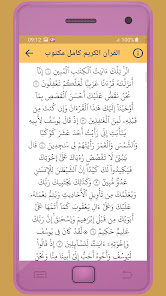 09:12 100%
القرآن الكريم كامل مكتوب
الٓر ۚ تِلْكَ ءَايَٰتُ ٱلْكِتَٰبِ ٱلْمُبِينِ ۝ إِنَّآ
أَنزَلْنَٰهُ قُرْءَٰنًا عَرَبِيًّا لَّعَلَّكُمْ تَعْقِلُونَ ۝
نَحْنُ نَقُصُّ عَلَيْكَ أَحْسَنَ ٱلْقَصَصِ بِمَآ
أَوْحَيْنَآ إِلَيْكَ هَٰذَا ٱلْقُرْءَانَ وَإِن كُنتَ مِن
قَبْلِهِۦ لَمِنَ ٱلْغَٰفِلِينَ ۝ إِذْ قَالَ يُوسُفُ لِأَبِيهِ
يَٰٓأَبَتِ إِنِّى رَأَيْتُ أَحَدَ عَشَرَ كَوْكَبًا
وَٱلشَّمْسَ وَٱلْقَمَرَ رَأَيْتُهُمْ لِى سَٰجِدِينَ ۝ قَالَ
يَٰبُنَىَّ لَا تَقْصُصْ رُءْيَاكَ عَلَىٰٓ إِخْوَتِكَ
فَيَكِيدُوا۟ لَكَ كَيْدًا ۖ إِنَّ ٱلشَّيْطَٰنَ لِلْإِنسَٰنِ
عَدُوٌّ مُّبِينٌ ۝ وَكَذَٰلِكَ يَجْتَبِيكَ رَبُّكَ
وَيُعَلِّمُكَ مِن تَأْوِيلِ ٱلْأَحَادِيثِ وَيُتِمُّ نِعْمَتَهُۥ
عَلَيْكَ وَعَلَىٰٓ ءَالِ يَعْقُوبَ كَمَآ أَتَمَّهَا عَلَىٰٓ
أَبَوَيْكَ مِن قَبْلُ إِبْرَٰهِيمَ وَإِسْحَٰقَ ۚ إِنَّ رَبَّكَ
عَلِيمٌ حَكِيمٌ ۝ ۞ لَّقَدْ كَانَ فِى يُوسُفَ
وَإِخْوَتِهِۦٓ ءَايَٰتٌ لِّلسَّآئِلِينَ ۝ إِذْ قَالُوا۟
لَيُوسُفُ وَأَخُوهُ أَحَبُّ إِلَىٰٓ أَبِينَا مِنَّا وَنَحْنُ